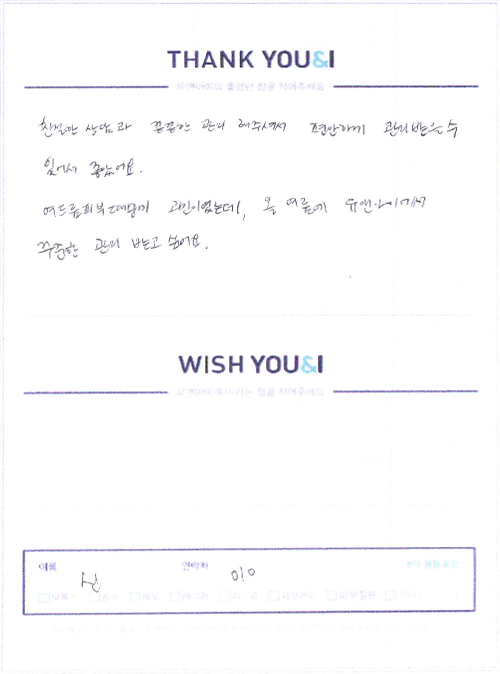 THANK YOU&I
유앤아이의 좋았던 점을 적어주세요
친절한 상담과 꼼꼼한 관리 해주셔서 편안하게 관리받을수
있어서 좋았어요.
여드름피부때문에 고민이었는데, 올 여름에 유앤아이에서
꾸준한 관리 받고 싶어요.
WISH YOU&I
유앤아이에 바라는 점을 적어주세요
이름 연락처 010
보톡스 필러 제모 레이저 피부관리 피부질환 기타